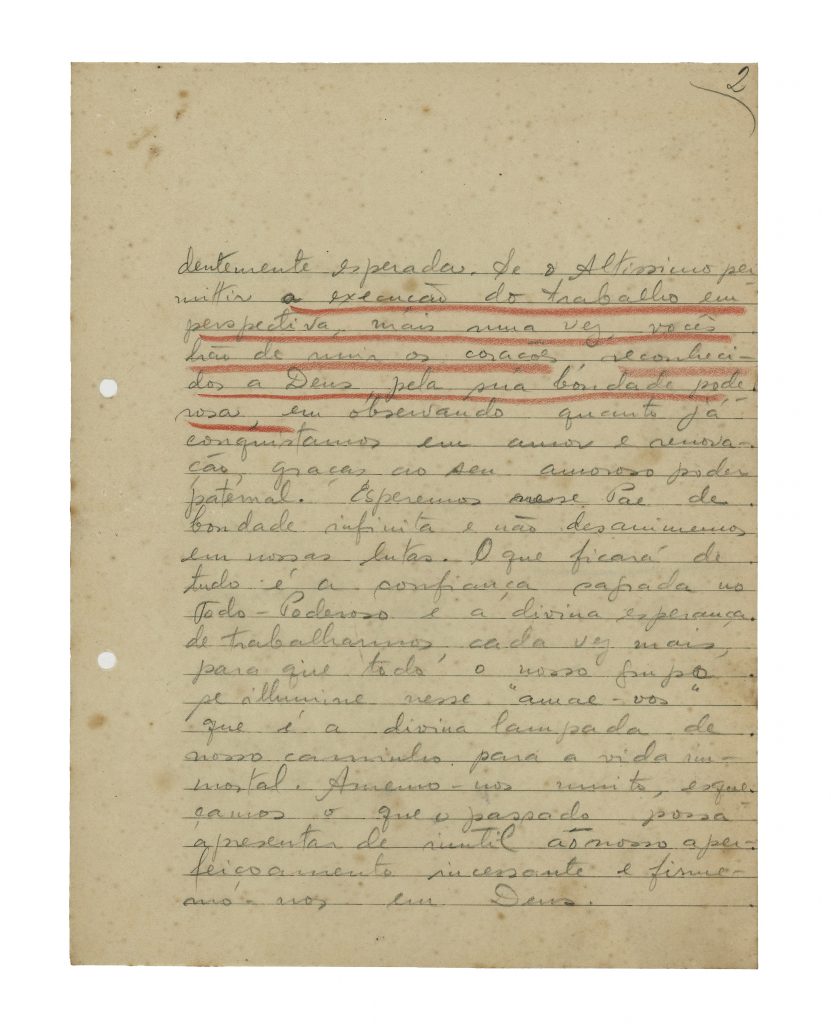 2
dentemente esperada. Se o Altissimo per
mittir a execução do trabalho em
perspectiva, mais uma vez, vocês
hão de unir os corações, reconheci-
dos a Deus, pela sua bondade pode
rosa, em observando quanto já
conquistamos em amor e renova-
ção, graças ao seu amoroso poder
paternal. Esperemos nesse Pae de
bondade infinita e não desanimemos
em nossas lutas. O que ficará de
tudo é a confiança sagrada no
Todo-Poderoso e a divina esperança
de trabalharmos, cada vez mais,
para que todo o nosso grupo
se illumine nesse "amae-vos"
que é a divina lampada de
nosso caminho para a vida im-
mortal. Amemo-nos muito, esque
çamos o que o passado possa
apresentar de inutil ao nosso aper-
feiçoamento incessante e firme-
mó-nos em Deus.